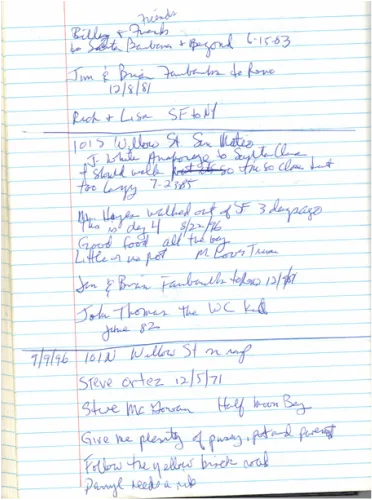 Friends
Billy & Frank
to Santa Barbara & Beyond 6-15-03
Jim & Brian Fairbanks to Reno
12/8/81
Rich & Lisa SF to NY
101 S Willow St. San Mateo
J. White Anchorage to Santa Clara
I should walk so close but
too lazy
walked out of SF 3 days ago
This is day 4 8/22/96
Good food all the way
Little or no pot
Jim & Brian Fairbanks to Reno
John Thomas the WC Kid
June 82
9/9/96 101 N Willow St
Steve Ortez 12/5/71
Steve McGowan Half Moon Bay
Give me plenty of pussy, pot and
Follow the yellow brick road
Darryl needs a ride